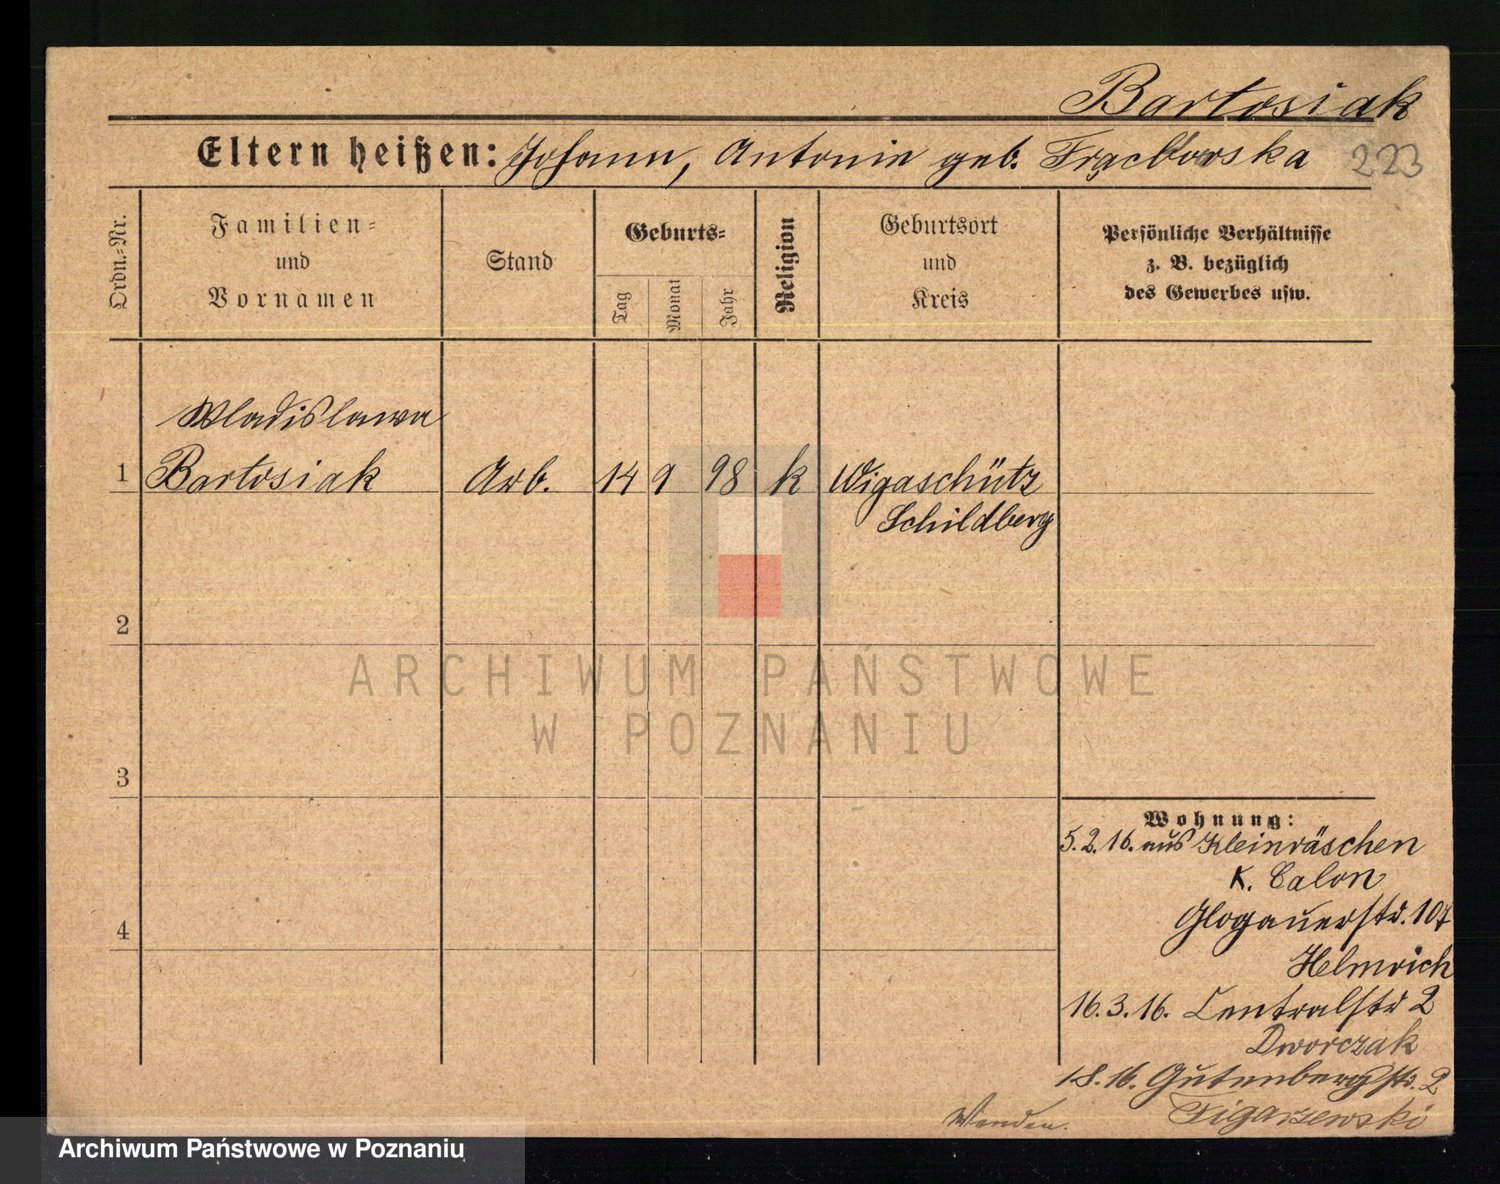 Bartosiak
Eltern heißen: Johann, Antonie geb.
223
Ordn.-Nr.
Familien-
und
Vornamen
Stand
Geburts-
Tag
Monat
Jahr
Religion
Geburtsort
und
Kreis
Persönliche Verhältnisse
z. B. bezüglich
des Gewerbes usw.
Wladislawa
1 Bartosiak Arb. 14 9 98 k Wigaschütz
Schildberg
2
3
4
Wohnung:
5.2.16. aus Kleinräschen
K. Calon
Glogauerstr. 107
Helmrich
16.3.16. Centralstr 2
Dworczak
1.8.16. Gutenbergstr. 2
Figarzewski
Wenden.
ARCHIWUM PAŃSTWOWE
W POZNANIU
Archiwum Państwowe w Poznaniu